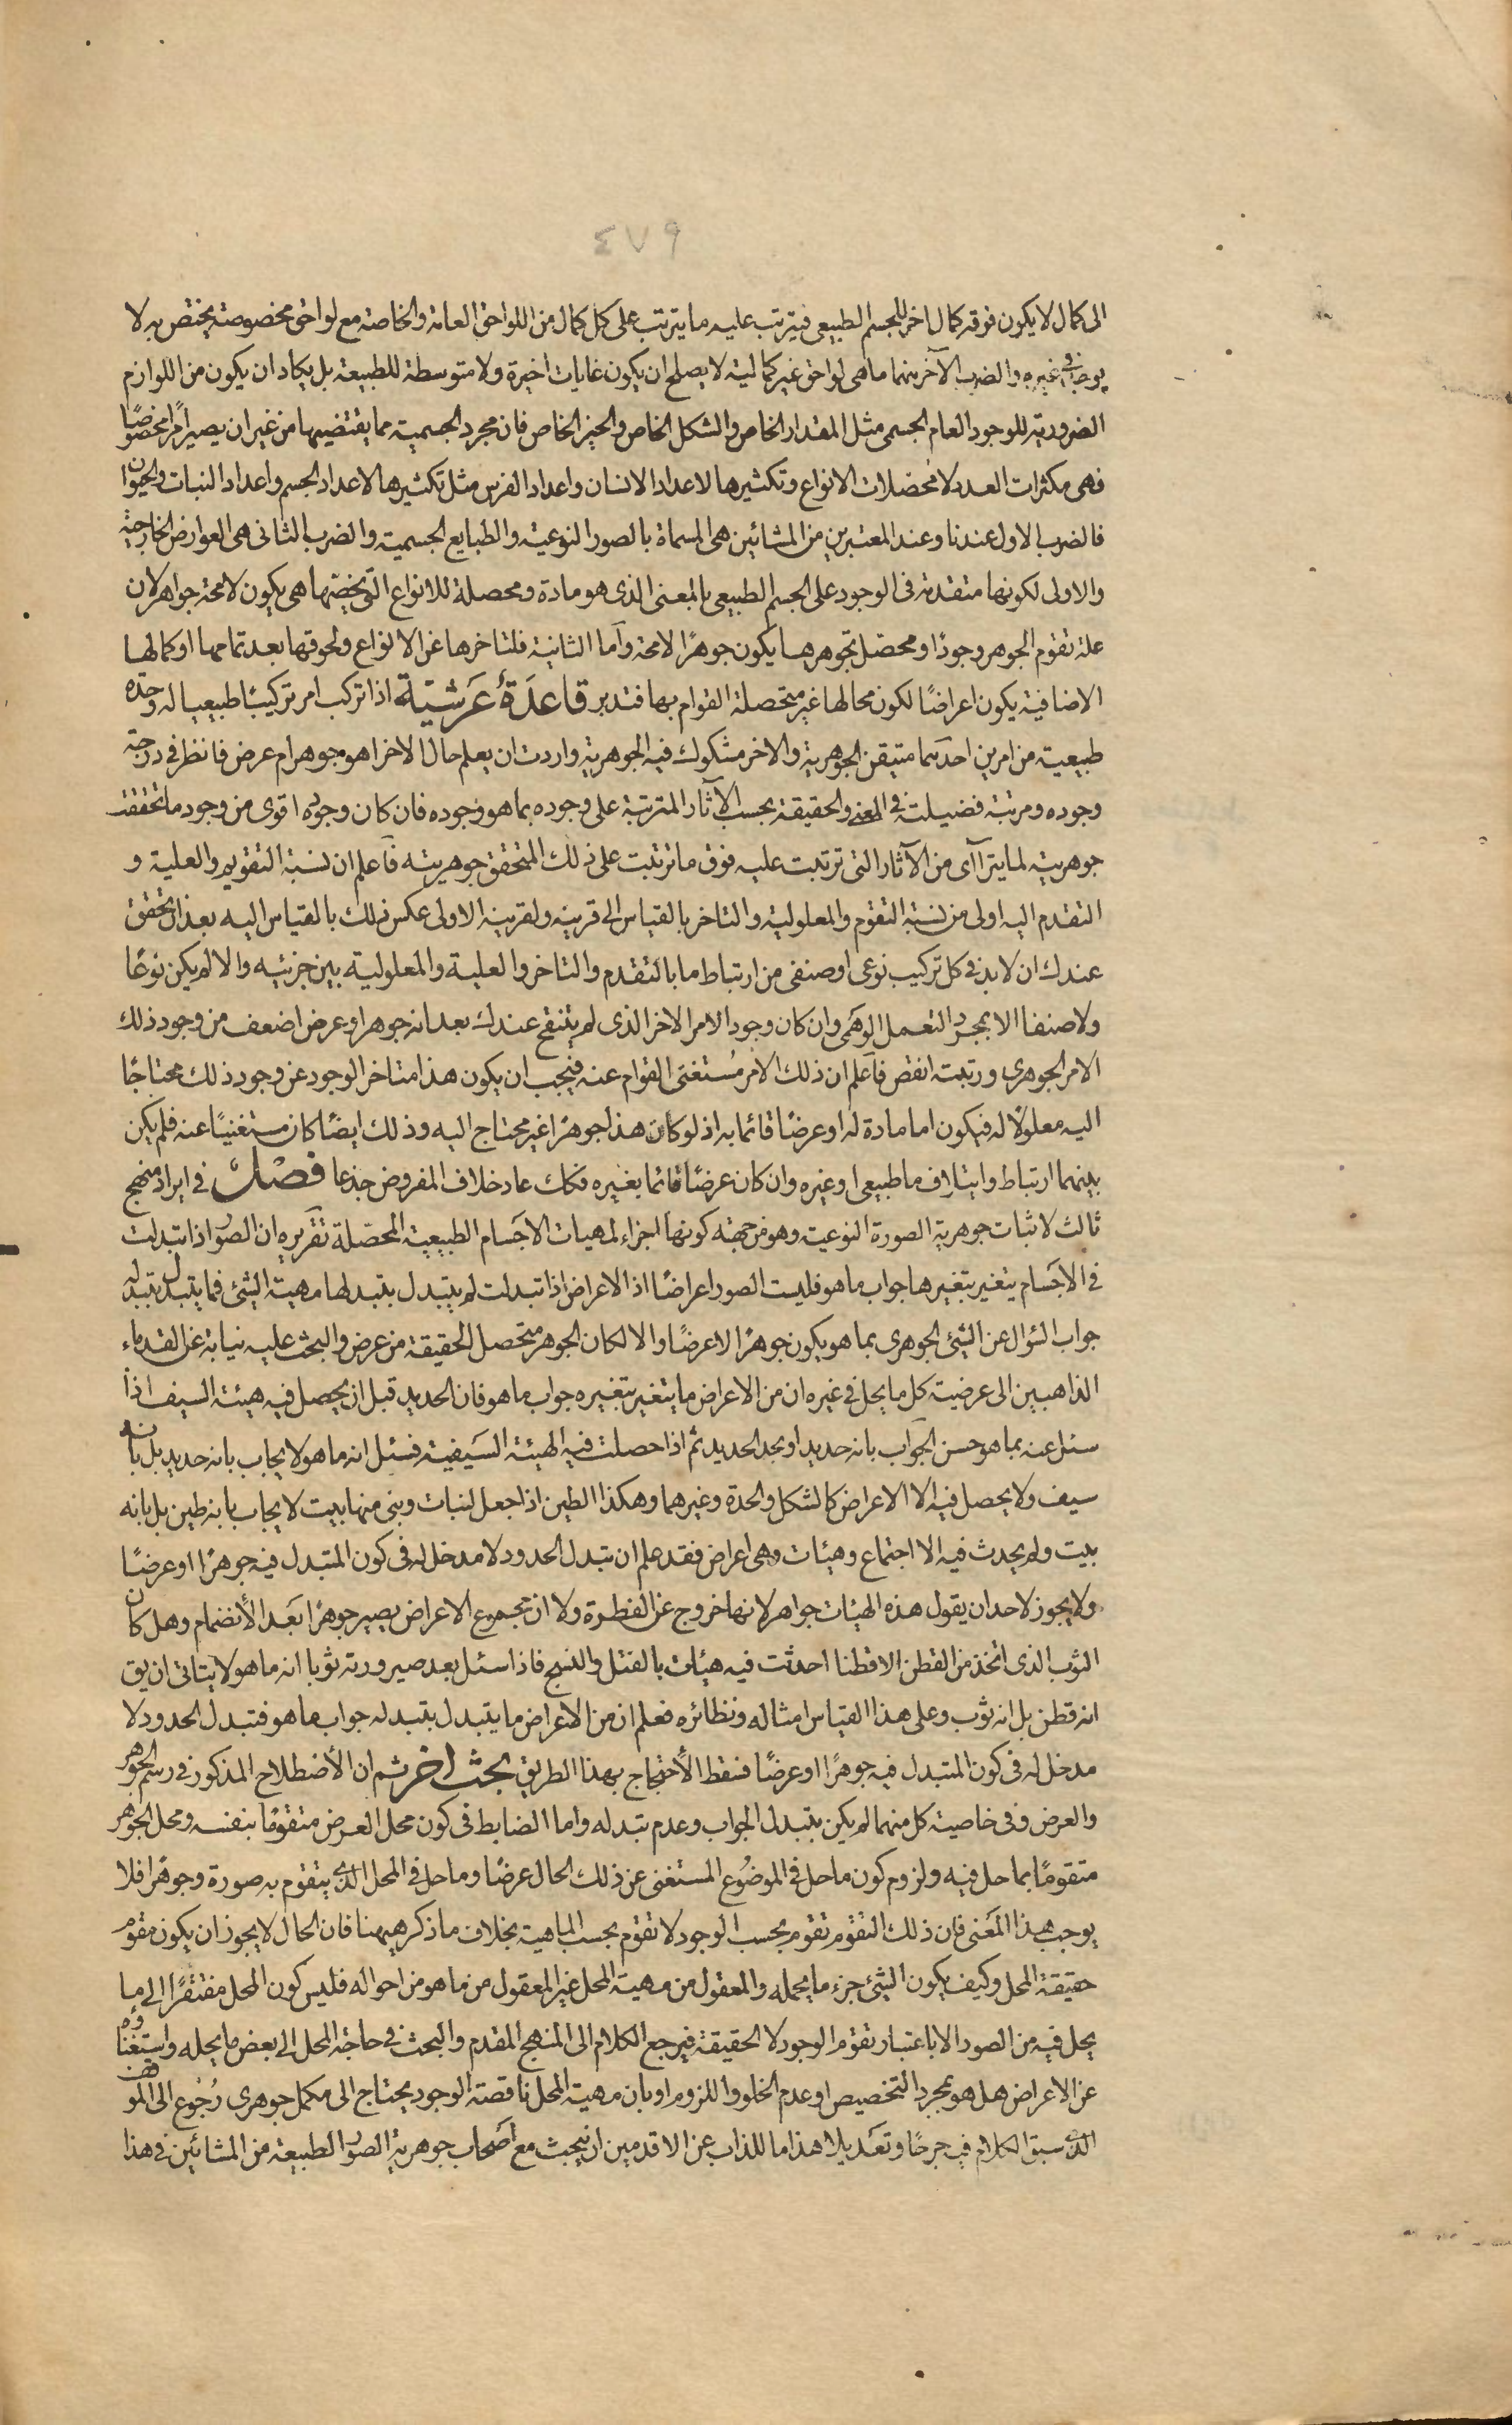 ٤٧٩
الى كمال لا يكون فوقه كمال اخر للجسم الطبيعى فيترتب عليه ما يترتب على كل كمال من اللواحق العامة والخاصة مع لواحق مخصوصة يختص به لا
يوجد فى غيره والضرب الآخر منهما ما هى لواحق غير كمالية لا يصلح ان يكون غايات اخيرة ولا متوسطة للطبيعة بل يكاد ان يكون من اللوازم
الضرورية للوجود العام الجسمى مثل المقدار الخاص والشكل الخاص والحيز الخاص فان مجرد الجسمية مما يقتضيها من غير ان يصير امرا مخصوصًا
فهى مكثرات العدد لا محصلات الانواع وتكثيرها لاعداد الانسان واعداد الفرس مثل تكثيرها لاعداد الجسم واعداد النبات والحيوان
فالضرب الاول عندنا وعند المعتبرين من المشائين هى المسماة بالصور النوعية والطبايع الجسمية والضرب الثانى هى العوارض الخارجية
والاولى لكونها متقدمة فى الوجود على الجسم الطبيعى بالمعنى الذى هو مادة ومحصلة للانواع التى يخصها هى يكون لا محة جواهر لان
علة تقوم الجوهر وجودًا ومحصل تجوهرها يكون جوهرًا لا محة وآما الثانية فلتاخرها عن الانواع ولحوقها بعد تمامها او كمالها
الاضافية يكون اعراضًا لكون محالها غير متحصلة القوام بها فتدبر قاعدَةٌ عَرشيّة اذا تركب امر تركيبًا طبيعيا له وحدة
طبيعية من امرين احدهما متيقن الجوهرية والاخر مشكوك فيه الجوهرية واردت ان يعلم حال الاخر اهو جوهر ام عرض فانظر فى درجة
وجوده ومرتبة فضيلته فى المعنى والحقيقة بحسب الآثار المترتبة على وجوده بما هو وجوده فان كان وجوده اقوى من وجود ما تحققت
جوهريته لما يتراآى من الآثار التى ترتبت عليه فوق ما ترتبت على ذلك المتحقق جوهريته فآعلم ان نسبة التقويم والعلية و
التقدم اليه اولى من نسبة التقوم والمعلولية والتاخر بالقياس الى قرينه ولقرينه الاولى عكس ذلك بالقياس اليه بعد ان تحقق
عندك ان لابد فى كل تركيب نوعى او صنفى من ارتباط ما بالتقدم والتاخر والعلية والمعلولية بين جزئيه والا لم يكن نوعًا
ولا صنفا الا بمجرد التعمل الوهمى وان كان وجود الامر الاخر الذى لم يتنقح عندك بعد انه جوهر او عرض اضعف من وجود ذلك
الامر الجوهرى ورتبته انقص فآعلم ان ذلك الامر مُستغنى القوام عنه فيجب ان يكون هذا متاخر الوجود عن وجود ذلك محتاجًا
اليه معلولًا له فيكون اما مادة له او عرضًا قائما به اذ لو كان هذا جوهرًا غير محتاج اليه وذلك ايضًا كان مستغنيًا عنه فلم يكن
بينهما ارتباط وايتلاف ما طبيعى او غيره وان كان عرضًا قائما بغيره فكك عاد خلاف المفروض جذعا فصل فى ايراد منهج
ثالث لاثبات جوهرية الصورة النوعية وهو من جهة كونها اجزاء لمهيات الاجسام الطبيعية المحصلة تقريره ان الصور اذا تبدلت
فى الاجسام يتغير بتغيرها جواب ما هو فليست الصور اعراضًا اذ الاعراض اذا تبدلت لم يتبدل بتبدلها مهية الشئ فما يتبدل بتبدله
جواب السؤال عن الشئ الجوهرى بما هو يكون جوهرًا لا عرضًا والا لكان الجوهر متحصل الحقيقة من عرض والبحث عليه نيابة عن القدماء
الذاهبين الى عرضية كل ما يحل فى غيره ان من الاعراض ما يتغير بتغيره جواب ما هو فان الحديد قبل ان يحصل فيه هيئة السيف اذا
سئل عنه بما هو حسن الجواب بانه حديد او بحد الحديد ثم اذا حصلت فيه الهيئة السيفية فسئل انه ما هو لا يجاب بانه حديد بل بانه
سيف ولا يحصل فيه الا الاعراض كالشكل والحدة وغيرهما وهكذا الطين اذا جعل لبنات وبنى منها بيت لا يجاب بانه طين بل بانه
بيت ولم يحدث فيه الا اجتماع وهيئات وهى اعراض فقد علم ان تبدل الحدود لا مدخل له فى كون المتبدل فيه جوهرًا او عرضًا
ولا يجوز لاحد ان يقول هذه الهيئات جواهر لانها خروج عن الفطرة ولا ان مجموع الاعراض يصير جوهرًا بعد الأنضمام وهل كان
الثوب الذى اتخذ من القطن الا قطنا احدثت فيه هيئات بالفتل والنسج فاذا سئل بعد صيرورته ثوبا انه ما هو لا يتاتى ان يق
انه قطن بل انه ثوب وعلى هذا القياس امثاله ونظائره فعلم ان من الاعراض ما يتبدل بتبدله جواب ما هو فتبدل الحدود لا
مدخل له فى كون المتبدل فيه جوهرًا او عرضًا فسقط الأحتجاج بهذا الطريق بحث اخر ثم ان الأصطلاح المذكور فى رسم الجوهر
والعرض وفى خاصية كل منهما لم يكن بتبدل الجواب وعدم تبدله واما الضابط فى كون محل العرض متقومًا بنفسه ومحل الجوهر
متقومًا بما حل فيه ولزوم كون ما حل فى الموضُوع المستغنى عن ذلك الحال عرضًا وما حل فى المحل الذى يتقوم به صورة وجوهرا فلا
يوجب هذا المعنى فان ذلك التقوم تقوم بحسب الوجود لا تقوم بحسب الماهية بخلاف ما ذكر هيهنا فان الحال لا يجوز ان يكون مقوم
حقيقة المحل وكيف يكون الشئ جزء ما يحمله والمعقول من مهية المحل غير المعقول من ما هو من احواله فليس كون المحل مفتقرًا الى ما
يحل فيه من الصور الا باعتبار تقوم الوجود لا الحقيقة فيرجع الكلام الى المنهج المقدم والبحث فى حاجة المحل الى بعض ما يحله واستغناؤه
عن الاعراض هل هو بمجرد التخصيص او عدم الخلو واللزوم او بان مهية المحل ناقصة الوجود يحتاج الى مكمل جوهرى رُجُوع الى الموقف
الذى سبق الكلام فيه جرحًا وتعديلا هذا ما للذاب عن الاقدمين ان يبحث مع اصحاب جوهرية الصور الطبيعة من المشائين فى هذا